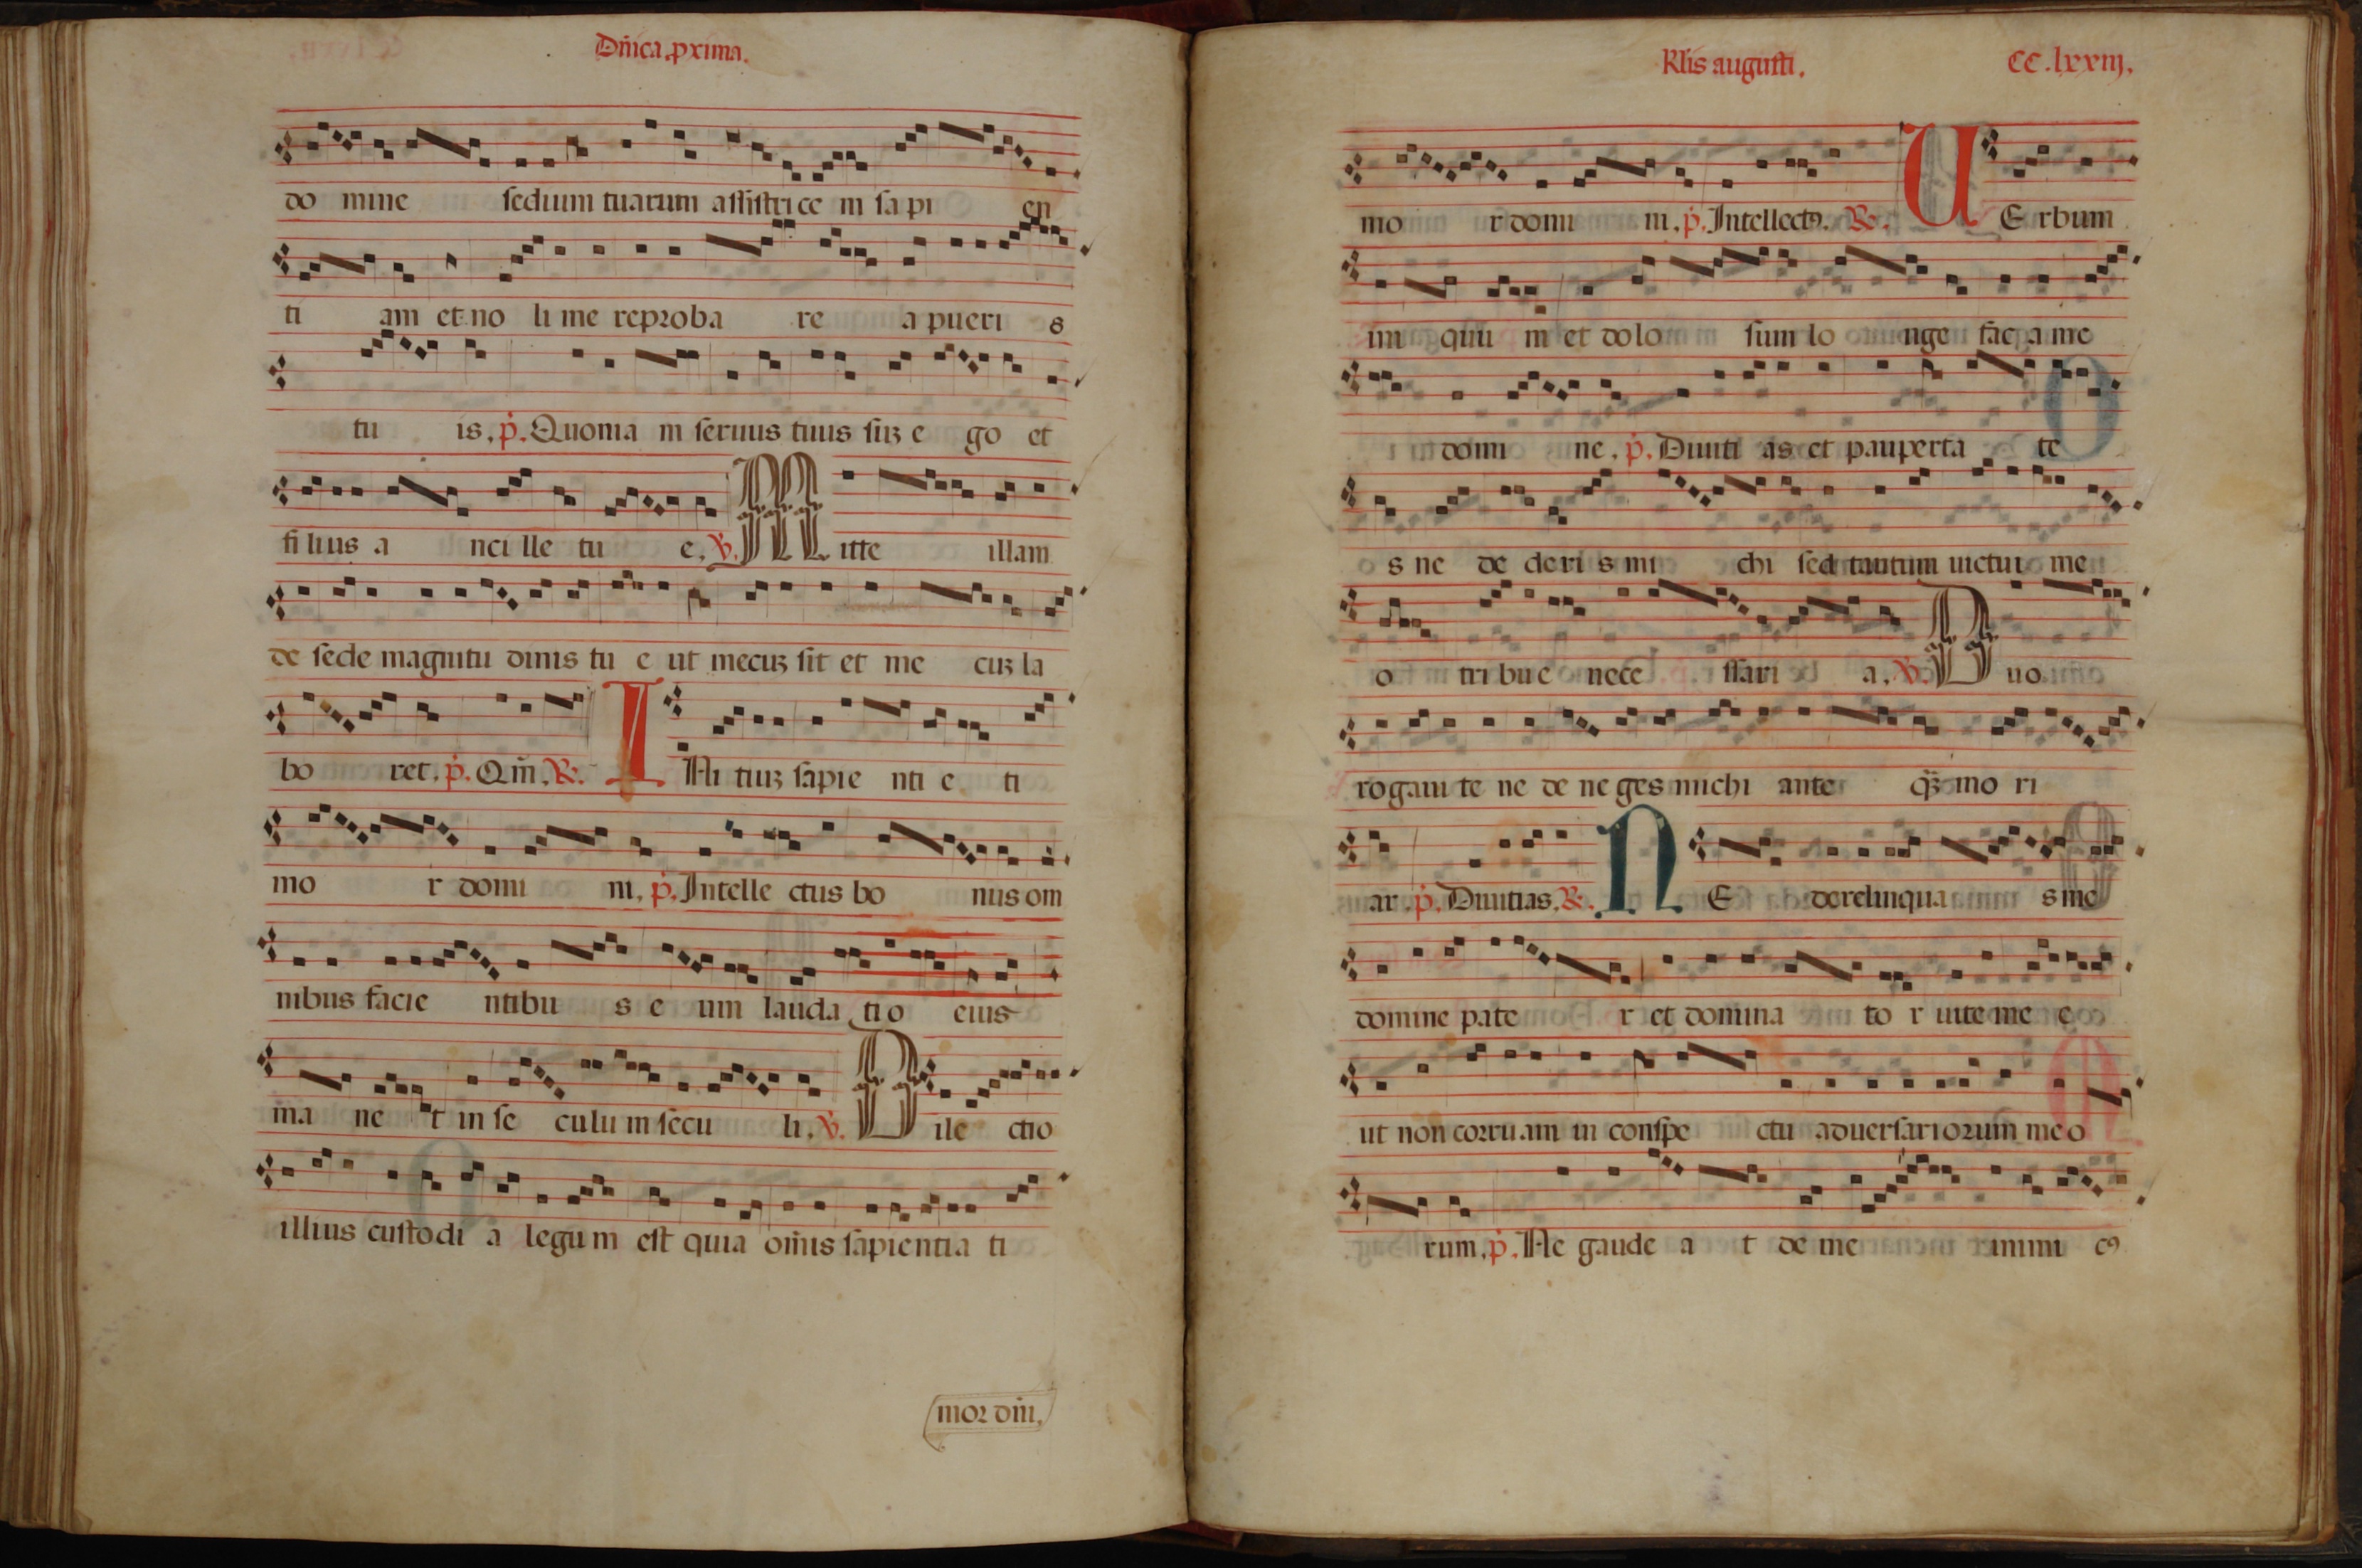 Dñica. pxima.
do mine sedium tuarum assistrice m sa pi en
ti am et no li me reproba re a pueri s
tu is. p. Quonia m seruus tuus suꝫ e go et
fi lius a nci lle tu e. ℣. M itte illam
de sede magnitu dinis tu e ut mecuꝫ sit et me cuꝫ la
bo ret. p. Qm̄. ℟. I Ni tiuꝫ sapie nti e ti
mo r domi ni. p. Intelle ctus bo nus om
nibus facie ntibu s e um lauda tio eius
ma ne t in se culu m secu li. ℣. D ile ctio
illius custodi a legum est quia om̄is sapientia ti
mor dn̄i.
Klis augusti. CC.lxxiij.
mo r domi ni. p. Intellectꝰ. ℟. U E rbum
ini quu m et dolo sum lo nge fac a me
domi ne. p. Diuiti as et pauperta te
s ne de deri s mi chi sed tantum uictui me
o tri bu e nece ssari a. ℣. D uo
rogaui te ne de ne ges michi ante qꝫ mo ri
ar. p. Diuitias. ℟. N E derelinqua s me
domine pate r et domina to r uite me e
ut non corruam in conspe ctu aduersariorum me o
rum. p. Ne gaude a t de me inimi cꝰ